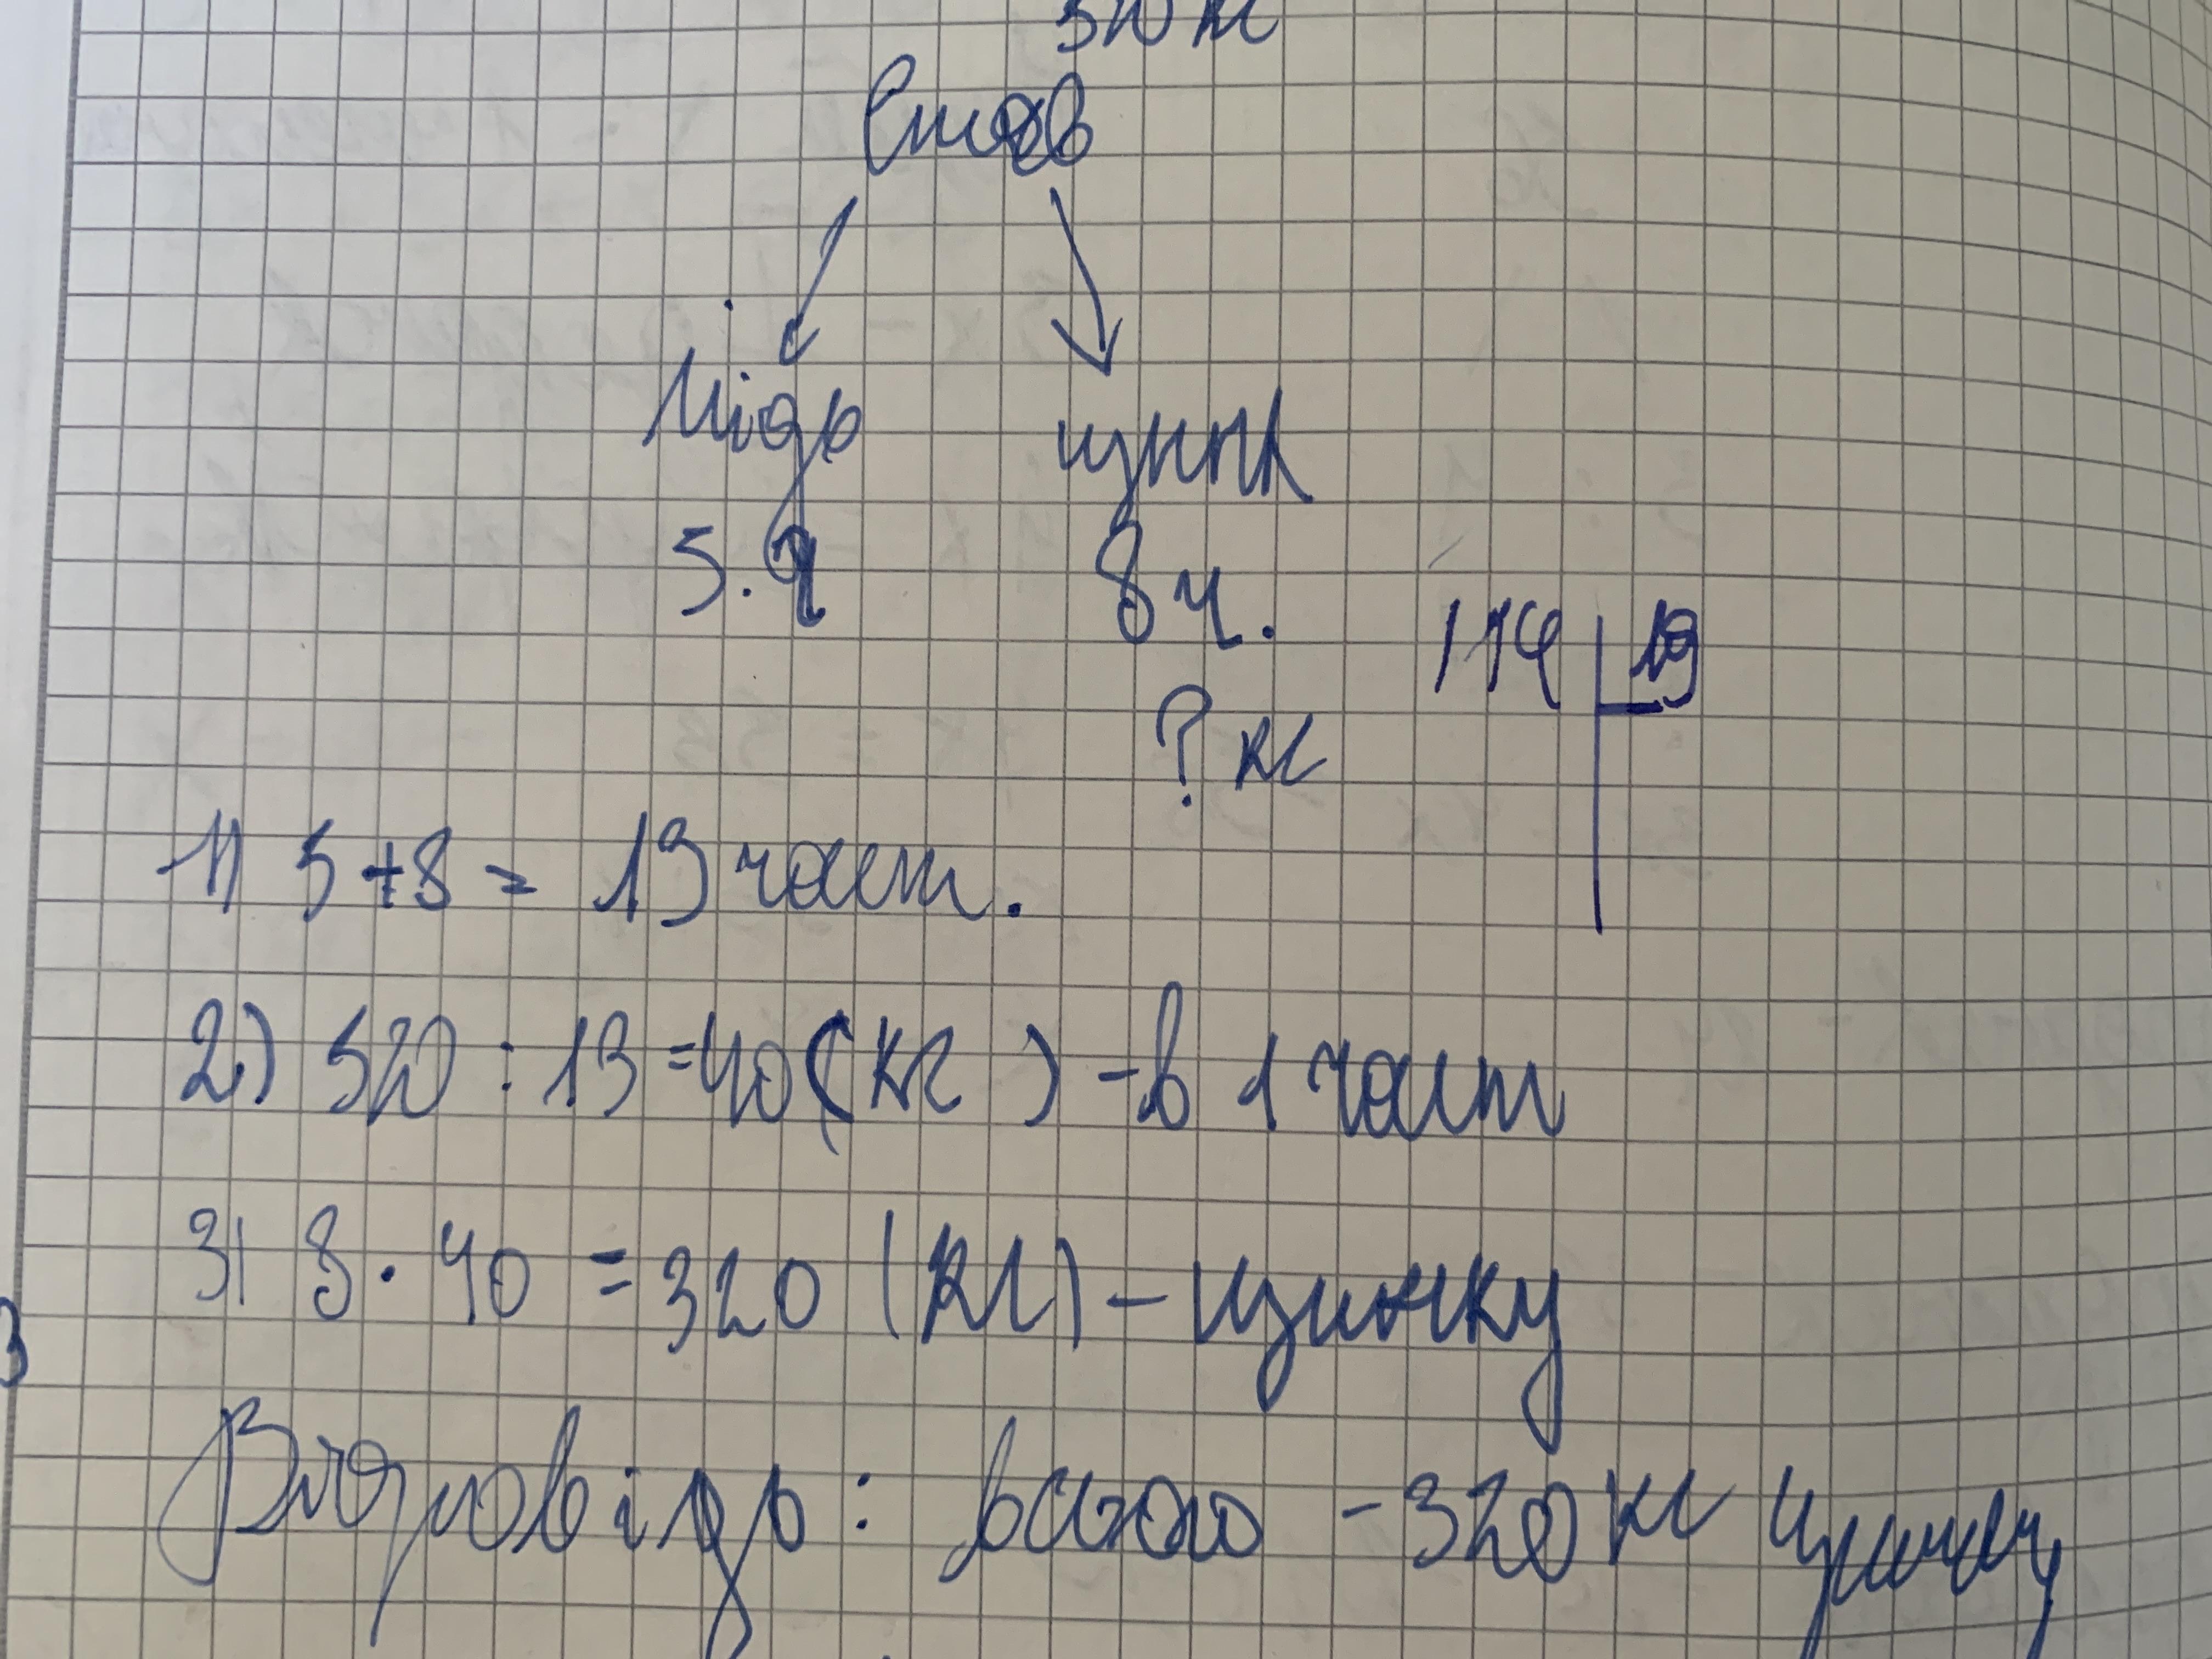 520 кг
Сплав
мідь цинк
5.ч 8ч.
114 19
? кг
1) 5+8 = 13 част.
2) 520 : 13 = 40 (кг) - в 1 част
3) 8 · 40 = 320 (кг) - цинку
Відповідь: - 320 кг цинку